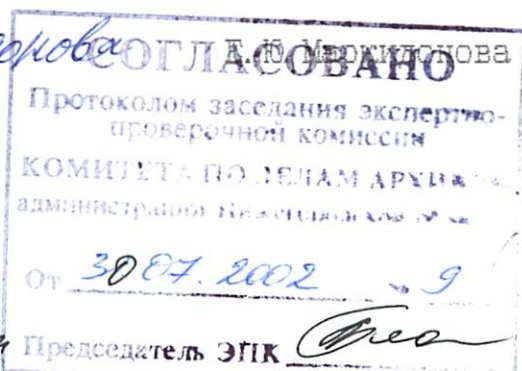 Е.Ю. Маркидонова
СОГЛАСОВАНО
Протоколом заседания экспертно-
проверочной комиссии
КОМИТЕТА ПО ДЕЛАМ АРХИВОВ
администрации
От 30 07. 2002 № 9
Председатель ЭПК